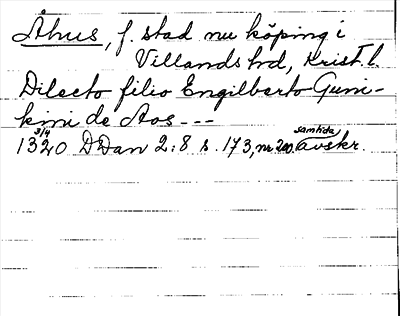 Åhus, f. stad nu köping i
Villands hd, Krist. l.
Dilecto filio Engilberto Guni-
kini de Aos ---
3/4 samtida
1320 DDan 2:8 s. 173, nr 200. avskr.